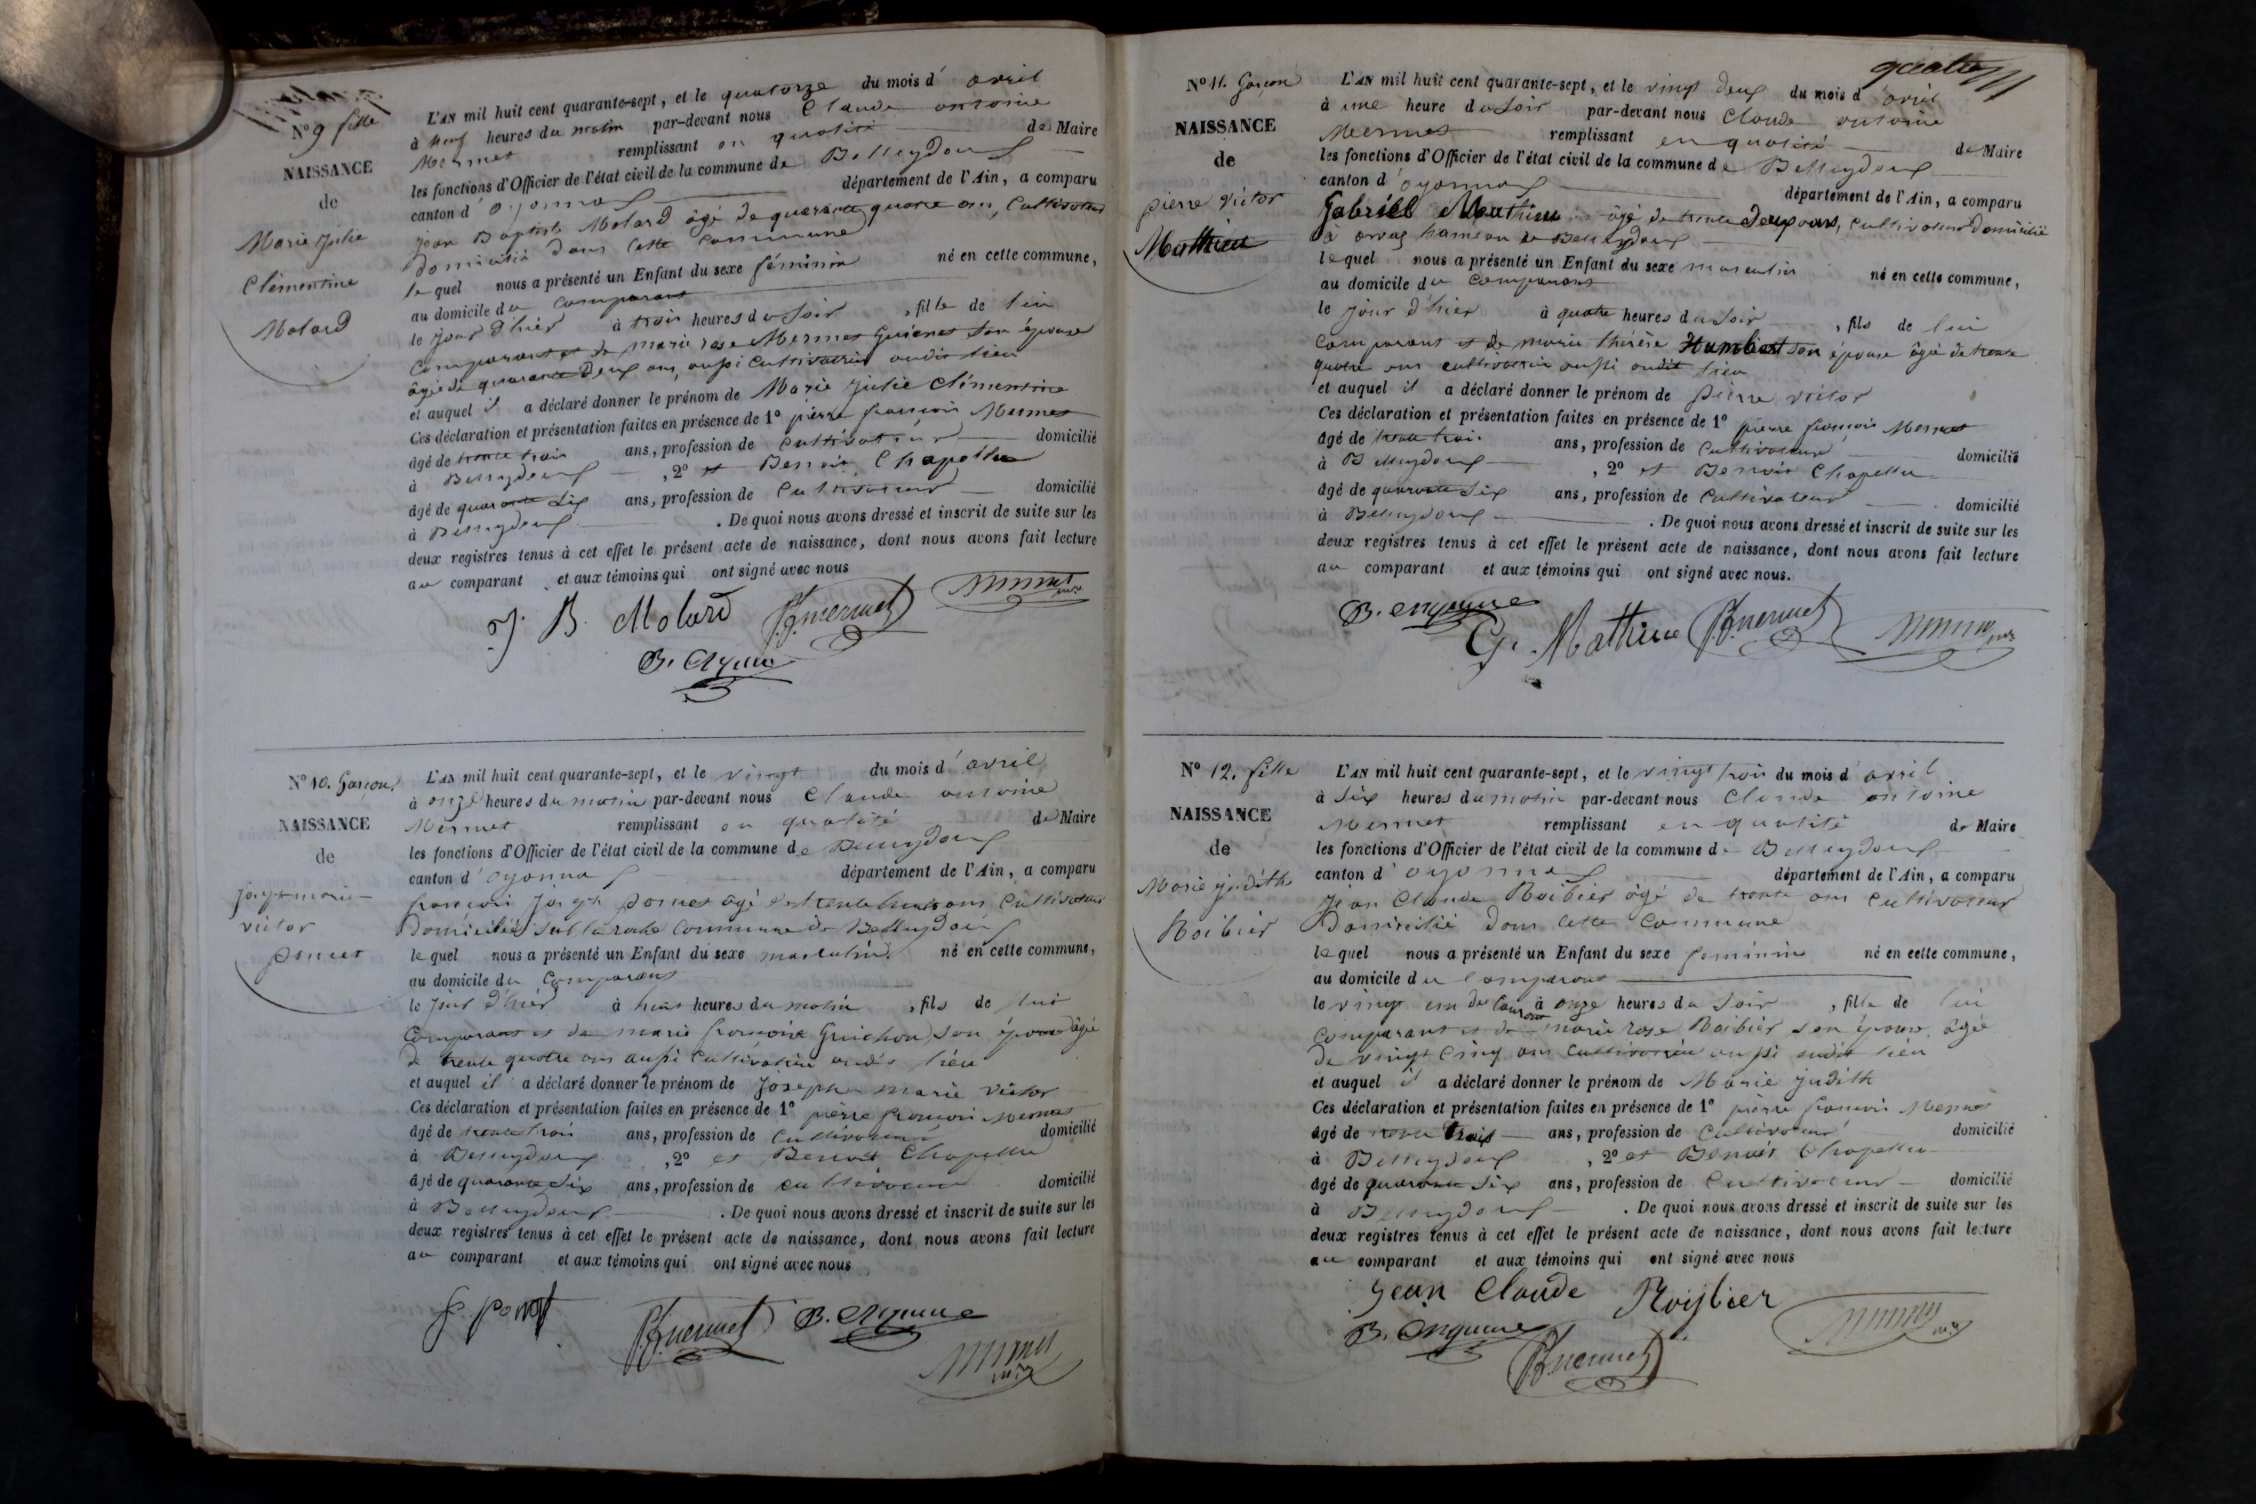 N° 9 fille
NAISSANCE
de
Marie Julie
Clémentine
Molard
L'AN mil huit cent quarante-sept, et le quatorze du mois d'avril
à neuf heures du matin par-devant nous Claude antoine
Mermet remplissant en qualité de Maire
les fonctions d'Officier de l'état civil de la commune de Belleydoux
canton d'oyonnax département de l'Ain, a comparu
jean Baptiste Molard âgé de quarante quatre ans, Cultivateur
Domicilié dans cette Commune
lequel nous a présenté un Enfant du sexe féminin né en cette commune,
au domicile du Comparant
le jour d'hier à trois heures du soir, fille de lui
Comparant et de marie rose Mermet Guienet son épouse
âgée de quarante Deux ans, aussi Cultivatrice audit lieu
et auquel il a déclaré donner le prénom de Marie julie Clémentine
Ces déclaration et présentation faites en présence de 1° pierre françois Mermet
âgé de trente trois ans, profession de Cultivateur domicilié
à Belleydoux, 2° et Benoit Chapellu
âgé de quarante six ans, profession de Cultivateur domicilié
à Belleydoux. De quoi nous avons dressé et inscrit de suite sur les
deux registres tenus à cet effet le présent acte de naissance, dont nous avons fait lecture
au comparant et aux témoins qui ont signé avec nous
J. B. Molard P.f. mermet
N° 10. Garçon
NAISSANCE
de
Joseph marie
victor
poncet
L'AN mil huit cent quarante-sept, et le vingt du mois d'avril
à onze heures du matin par-devant nous Claude antoine
Mermet remplissant en qualité de Maire
les fonctions d'Officier de l'état civil de la commune de Belleydoux
canton d'oyonnax département de l'Ain, a comparu
françois Joseph poncet âgé de trente huit ans, Cultivateur
Domicilié sublaroche Commune de Belleydoux
lequel nous a présenté un Enfant du sexe masculin né en cette commune,
au domicile du Comparant
le jour d'hier à huit heures du matin, fils de lui
Comparant et de marie françoise Guichon son épouse âgée
de trente quatre ans aussi Cultivatrice audit lieu
et auquel il a déclaré donner le prénom de Joseph marie victor
Ces déclaration et présentation faites en présence de 1° pierre françois Mermet
âgé de trente trois ans, profession de Cultivateur domicilié
à Belleydoux, 2° et Benoit Chapellu
âgé de quarante six ans, profession de cultivateur domicilié
à Belleydoux. De quoi nous avons dressé et inscrit de suite sur les
deux registres tenus à cet effet le présent acte de naissance, dont nous avons fait lecture
au comparant et aux témoins qui ont signé avec nous
P.f. mermet
quatre
N° 11. Garçon
NAISSANCE
de
pierre victor
Mathieu
L'AN mil huit cent quarante-sept, et le vingt deux du mois d'avril
à une heure du soir par-devant nous Claude antoine
Mermet remplissant en qualité de Maire
les fonctions d'Officier de l'état civil de la commune de Belleydoux
canton d'oyonnax département de l'Ain, a comparu
Gabriel Mathieu âgé de trente deux ans, Cultivateur domicilié
à orvaz hameau de Belleydoux
lequel nous a présenté un Enfant du sexe masculin né en cette commune,
au domicile du Comparant
le jour d'hier à quatre heures du soir, fils de lui
Comparant et de marie thérèse Humbert son épouse âgée de trente
quatre ans cultivatrice aussi audit lieu
et auquel il a déclaré donner le prénom de pierre victor
Ces déclaration et présentation faites en présence de 1° pierre françois Mermet
âgé de trente trois ans, profession de Cultivateur domicilié
à Belleydoux, 2° et Benoit Chapellu
âgé de quarante six ans, profession de Cultivateur domicilié
à Belleydoux. De quoi nous avons dressé et inscrit de suite sur les
deux registres tenus à cet effet le présent acte de naissance, dont nous avons fait lecture
au comparant et aux témoins qui ont signé avec nous.
G. Mathieu P.f. mermet
N° 12. fille
NAISSANCE
de
Marie judith
Roibier
L'AN mil huit cent quarante-sept, et le vingt trois du mois d'avril
à six heures du matin par-devant nous Claude antoine
Mermet remplissant en qualité de Maire
les fonctions d'Officier de l'état civil de la commune de Belleydoux
canton d'oyonnax département de l'Ain, a comparu
jean Claude Roibier âgé de trente ans Cultivateur
Domicilié dans cette Commune
lequel nous a présenté un Enfant du sexe feminin né en cette commune,
au domicile du Comparant
le vingt un du courant à onze heures du soir, fille de lui
Comparant et de marie rose Roibier son épouse âgée
de vingt cinq ans Cultivatrice aussi audit lieu
et auquel il a déclaré donner le prénom de Marie judith
Ces déclaration et présentation faites en présence de 1° pierre françois Mermet
âgé de trente trois ans, profession de Cultivateur domicilié
à Belleydoux, 2° et Benoit Chapellu
âgé de quarante six ans, profession de Cultivateur domicilié
à Belleydoux. De quoi nous avons dressé et inscrit de suite sur les
deux registres tenus à cet effet le présent acte de naissance, dont nous avons fait lecture
au comparant et aux témoins qui ont signé avec nous
Jean Claude Roijbier
P.f. mermet